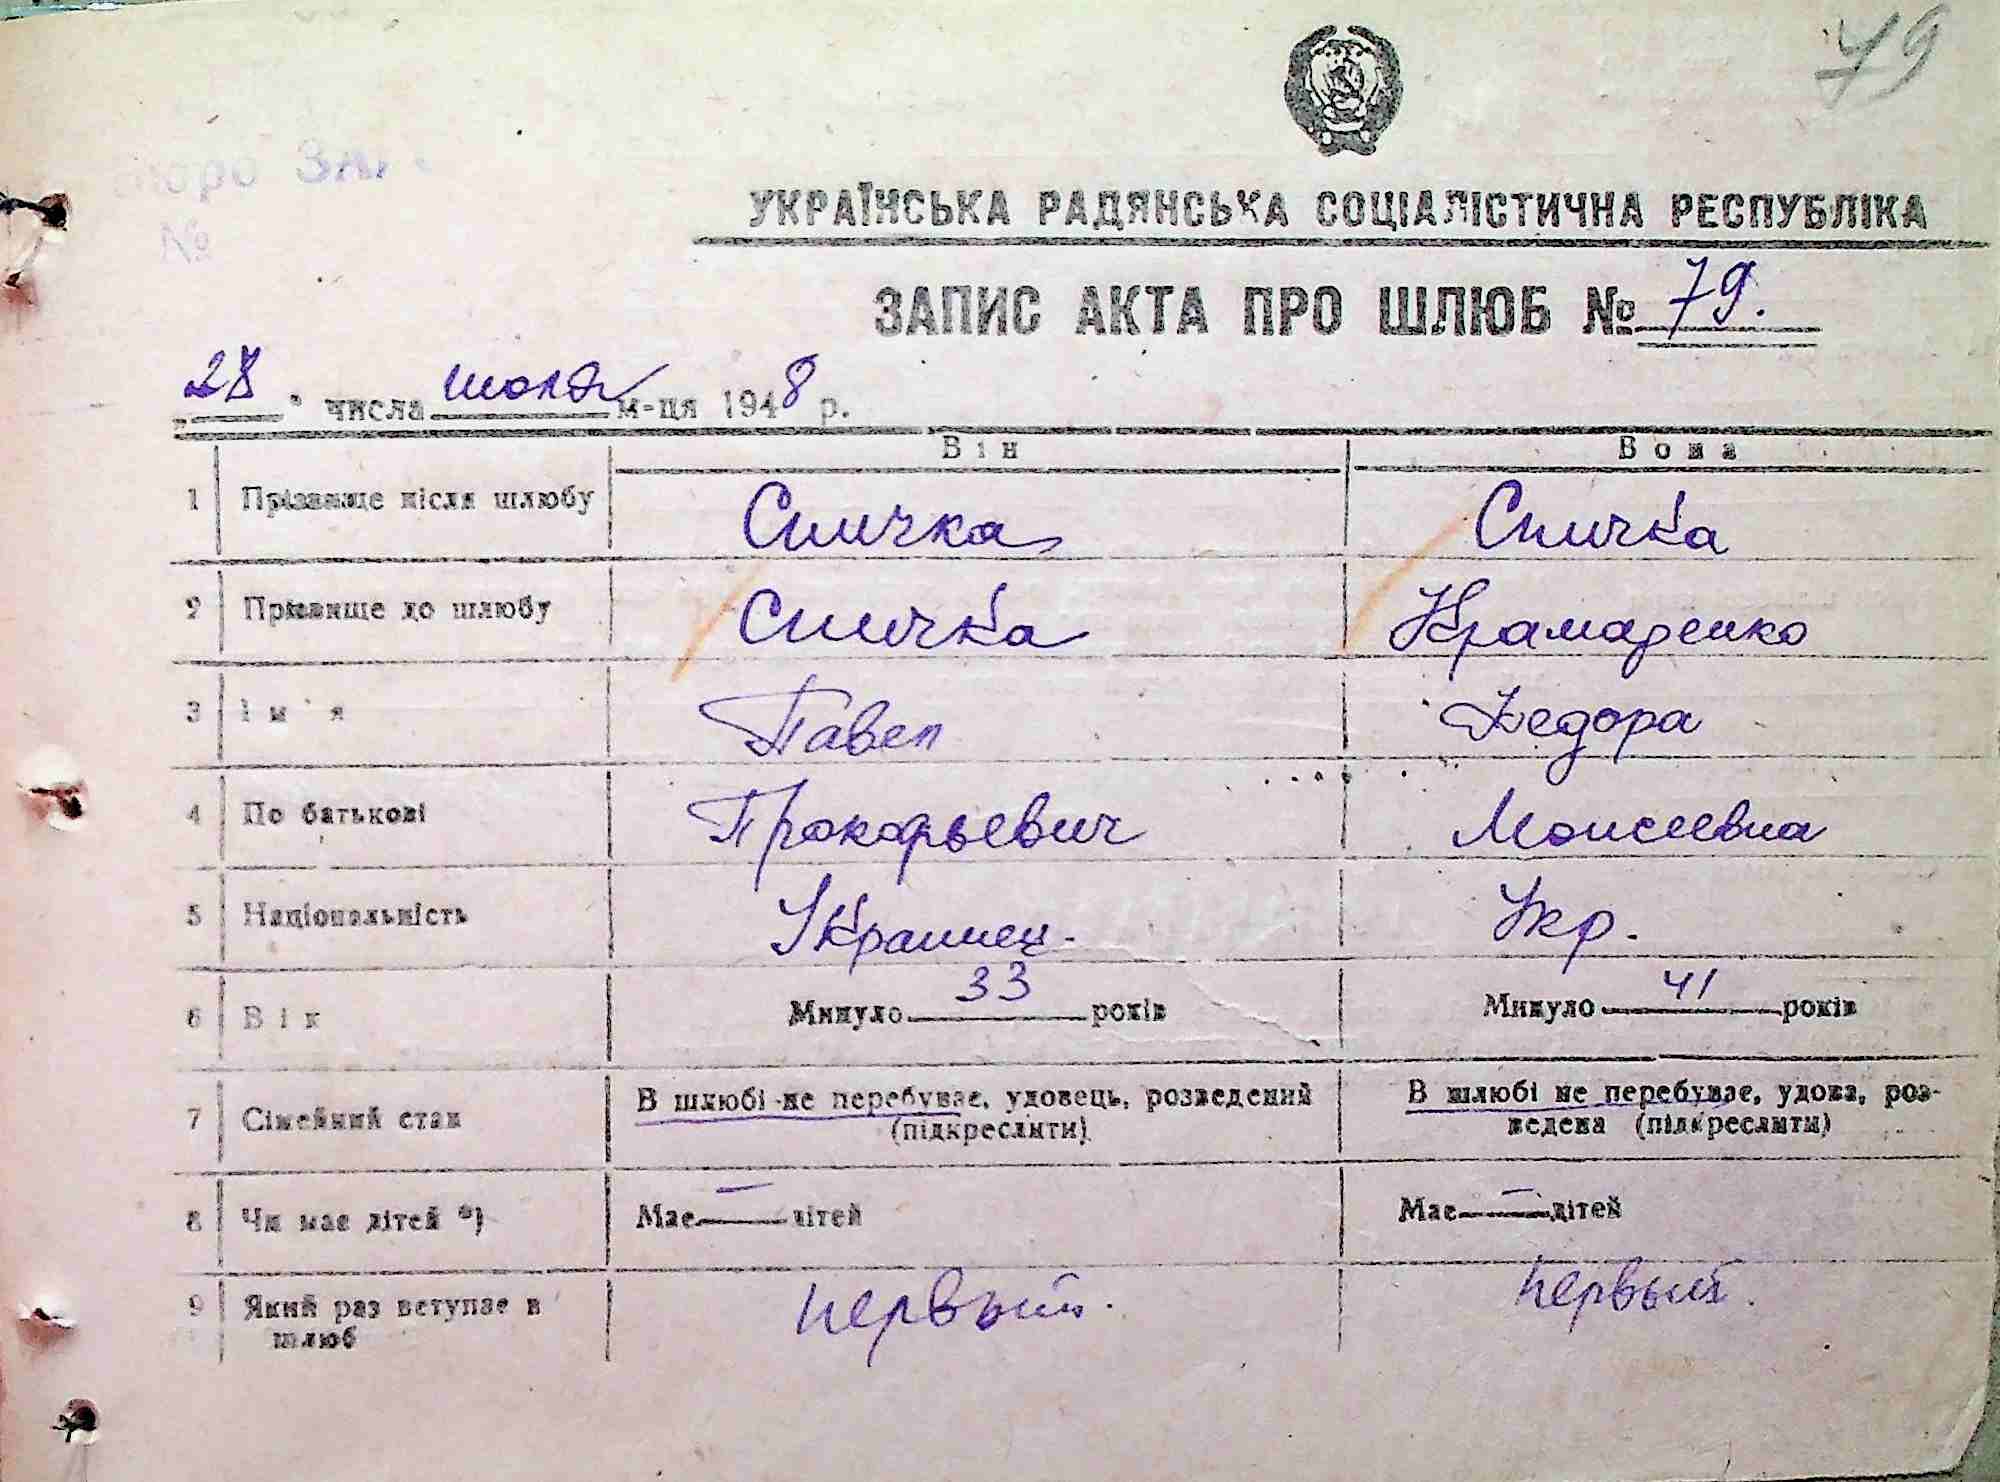 79
Бюро ЗАГС
№
УКРАЇНСЬКА РАДЯНСЬКА СОЦІАЛІСТИЧНА РЕСПУБЛІКА
ЗАПИС АКТА ПРО ШЛЮБ № 79.
„28" числа июля м-ця 1948 р.
Він Вона
1 Прізвище після шлюбу Спичка Спичка
2 Прізвище до шлюбу Спичка Крамаренко
3 Ім'я Павел Федора
4 По батькові Прокофьевич Моисеевна
5 Національність Украинец. Укр.
6 Вік Минуло 33 років Минуло 41 років
7 Сімейний стан В шлюбі не перебуває, удовець, розведений (підкреслити) В шлюбі не перебуває, удова, роз-
ведена (підкреслити)
8 Чи має дітей *) Має — дітей Має — дітей
9 Який раз вступає в шлюб первый. первый.